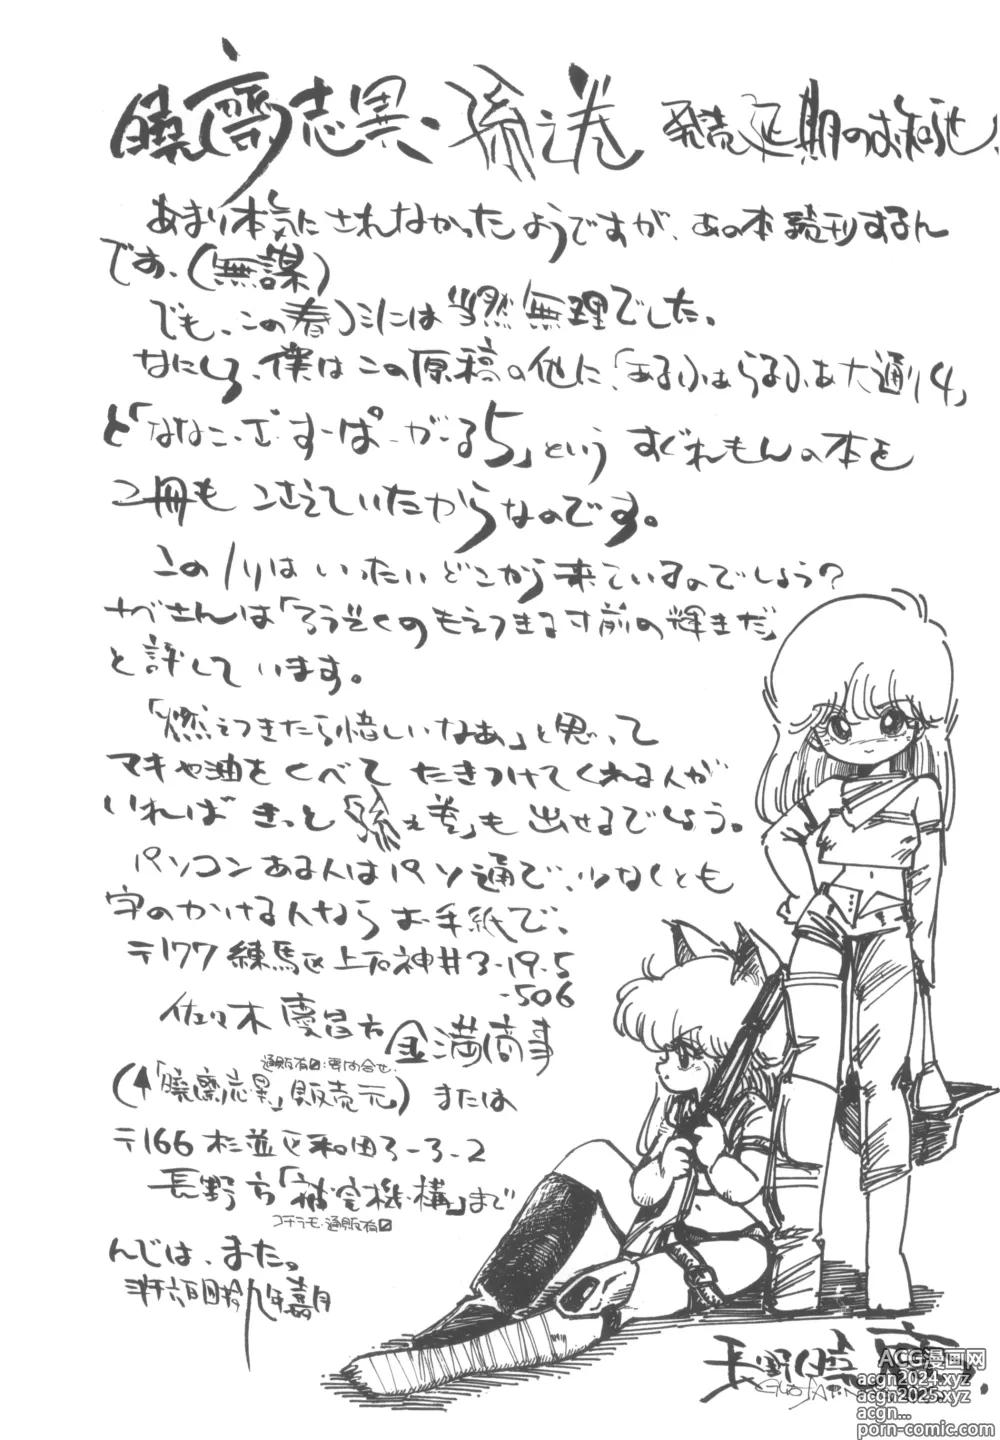 曉齋志異・孫之巻 発売延期のお知らせ!
あまり本気にされなかったようですが、あの本続刊するん
です、(無謀)
でも、この春コミには当然無理でした。
なにしろ、僕はこの原稿の他に、「あるふぁらるふぁ大通り4」
と「ななこ・ざ・すーぱーがーる5」というすぐれもんの本を
2冊もこさえていたからなのです。
このノリはいったいどこから来ているのでしょう?
ナベさんは「ろうそくのもえつきます寸前の輝きだ」
と評しています。
「燃えつきたら惜しいなぁ」と思って
マキや油をくべてたきつけてくれる人が
いればきっと「孫之巻」も出せるでしょう。
パソコンある人はパソ通で、少なくとも
字のかける人ならお手紙で、
〒177 練馬区上石神井3-19-5
-506
佐々木 方 金満商事
通販有〼:要問合せ.
(↑「曉齋志異」販売元) または
〒166 杉並区和田3-3-2
長野方「補完機構」まで
コチラモ・通販有〼
んじは、また。
長野曉
ACG漫画网
acgn2024.xyz
acgn2025.xyz
acgn...
porn-comic.com